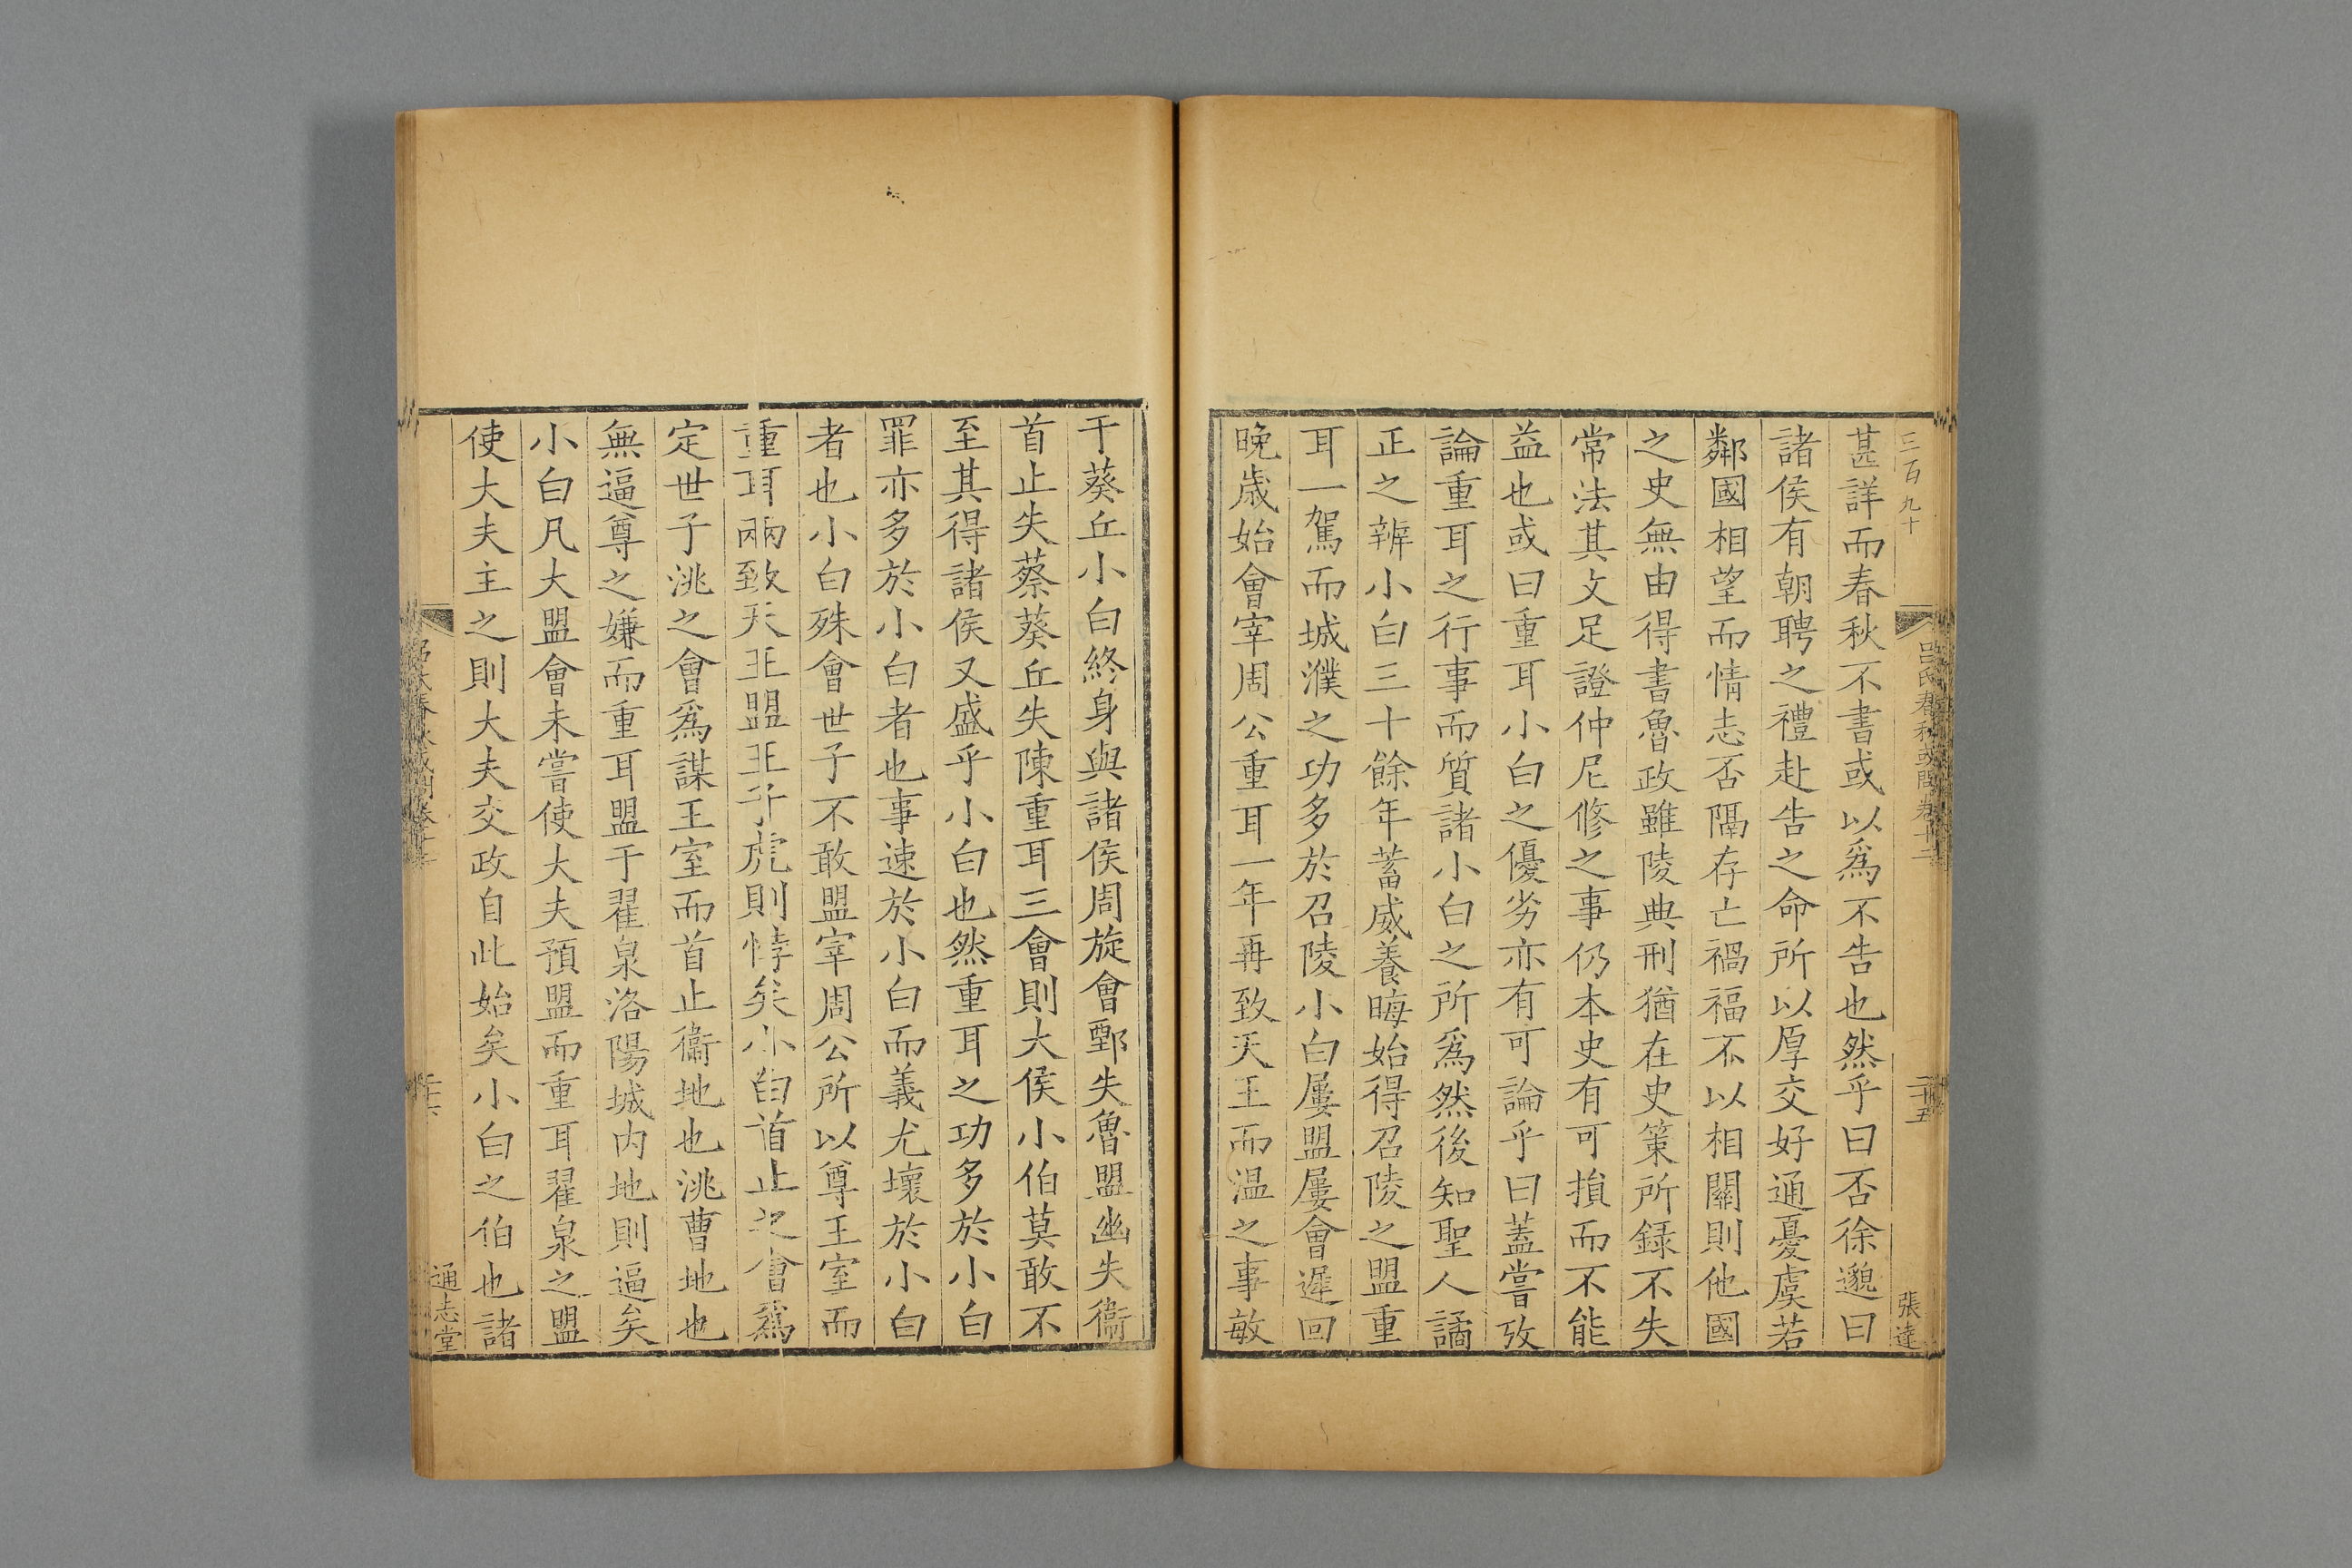 三百九十
呂氏春秋或問卷十二
二十五
張達
甚詳而春秋不書或以爲不告也然乎曰否徐邈曰
諸侯有朝聘之禮赴告之命所以厚交好通憂虞若
鄰國相望而情志否隔存亡禍福不以相關則他國
之史無由得書魯政雖陵典刑猶在史策所録不失
常法其文足證仲尼修之事仍本史有可損而不能
益也或曰重耳小白之優劣亦有可論乎曰蓋嘗攷
論重耳之行事而質諸小白之所爲然後知聖人譎
正之辨小白三十餘年蓄威養晦始得召陵之盟重
耳一駕而城濮之功多於召陵小白屢盟屢會遲回
晚歲始會宰周公重耳一年再致天王而温之事敏
于葵丘小白終身與諸侯周旋會鄄失魯盟幽失衞
首止失蔡葵丘失陳重耳三會則大侯小伯莫敢不
至其得諸侯又盛乎小白也然重耳之功多於小白
罪亦多於小白者也事速於小白而義尤壞於小白
者也小白殊會世子不敢盟宰周公所以尊王室而
重耳兩致天王盟王子虎則悖矣小白首止之會爲
定世子洮之會爲謀王室而首止衞地也洮曹地也
無逼尊之嫌而重耳盟于翟泉洛陽城内地則逼矣
小白凡大盟會未嘗使大夫預盟而重耳翟泉之盟
使大夫主之則大夫交政自此始矣小白之伯也諸
通志堂